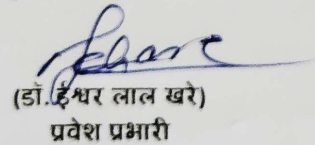 (डॉ. ईश्वर लाल खरे)
प्रवेश प्रभारी